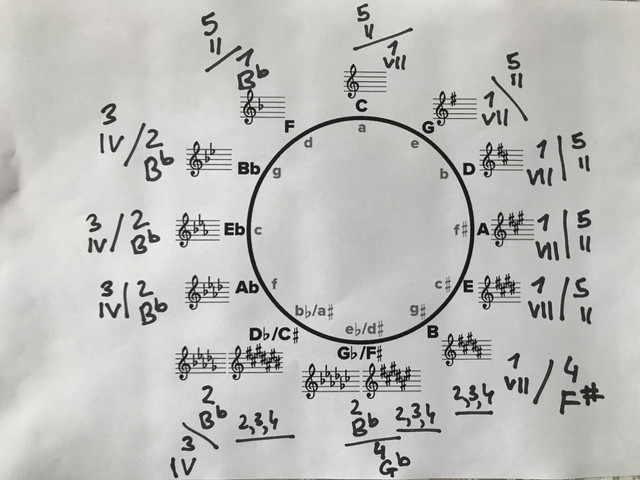 5
II
5
II
1
VII
1
Bb
5
II
1
VII
C
F
G
a
d
e
3
IV
2
Bb
Bb
g
b
D
1
VII
5
II
3
IV
2
Bb
Eb
c
f#
A
1
VII
5
II
3
IV
2
Bb
Ab
f
c#
E
1
VII
5
II
bb/a#
eb/d#
g#
Db/C#
Gb/F#
B
1
VII
4
F#
2
Bb
3
IV
2,3,4
2
Bb
4
Gb
2,3,4
2,3,4